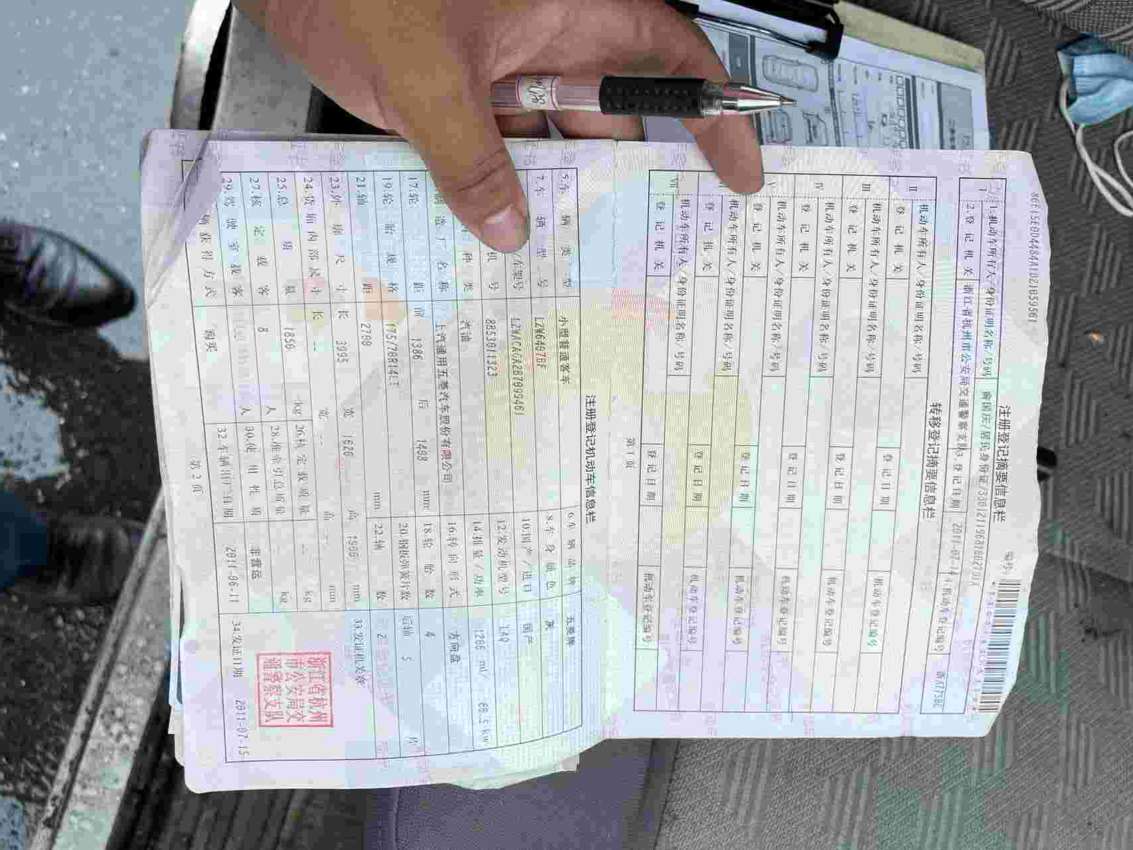 注册登记摘要信息栏
编号:
1.机动车所有人/身份证明名称/号码
2.登记机关 浙江省杭州市公安局交通警察支队 3.登记日期 4.机动车登记编号
转移登记摘要信息栏
II 机动车所有人/身份证明名称/号码
登记机关 登记日期 机动车登记编号
III 机动车所有人/身份证明名称/号码
登记机关 登记日期 机动车登记编号
IV 机动车所有人/身份证明名称/号码
登记机关 登记日期 机动车登记编号
V 机动车所有人/身份证明名称/号码
登记机关 登记日期 机动车登记编号
机动车所有人/身份证明名称/号码
登记机关 登记日期 机动车登记编号
VII 机动车所有人/身份证明名称/号码
登记机关 登记日期 机动车登记编号
第1页
注册登记机动车信息栏
5.车辆类型 小型普通客车 6.车辆品牌 五菱牌
7.车辆型号 LZW6407BF 8.车身颜色 灰
车架号 10.国产/进口 国产
机号 8B53011323 12.发动机型号 LAQ
种类 汽油 14.排量/功率 1206 ml/ 60.5 kw
制造厂名称 上汽通用五菱汽车股份有限公司 16.转向形式 方向盘
17.轮距 前 1386 后 1408 mm 18.轮胎数 4
19.轮胎规格 175/70R14LT 20.钢板弹簧片数 后轴 5 片
21.轴距 2700 mm 22.轴数 2
23.外廓尺寸 长 3995 宽 1620 高 1900 mm 33.发证机关章
24.货箱内部尺寸 长 -- 宽 -- 高 -- mm
25.总质量 1850 kg 26.核定载质量 -- kg
27.核定载客 8 人 28.准牵引总质量 -- kg
29.驾驶室载客 人 30.使用性质 非营运
获得方式 购买 32.车辆出厂日期 2011-06-11 34.发证日期 2011-07-15
浙江省杭州
市公安局交
通警察支队
第2页